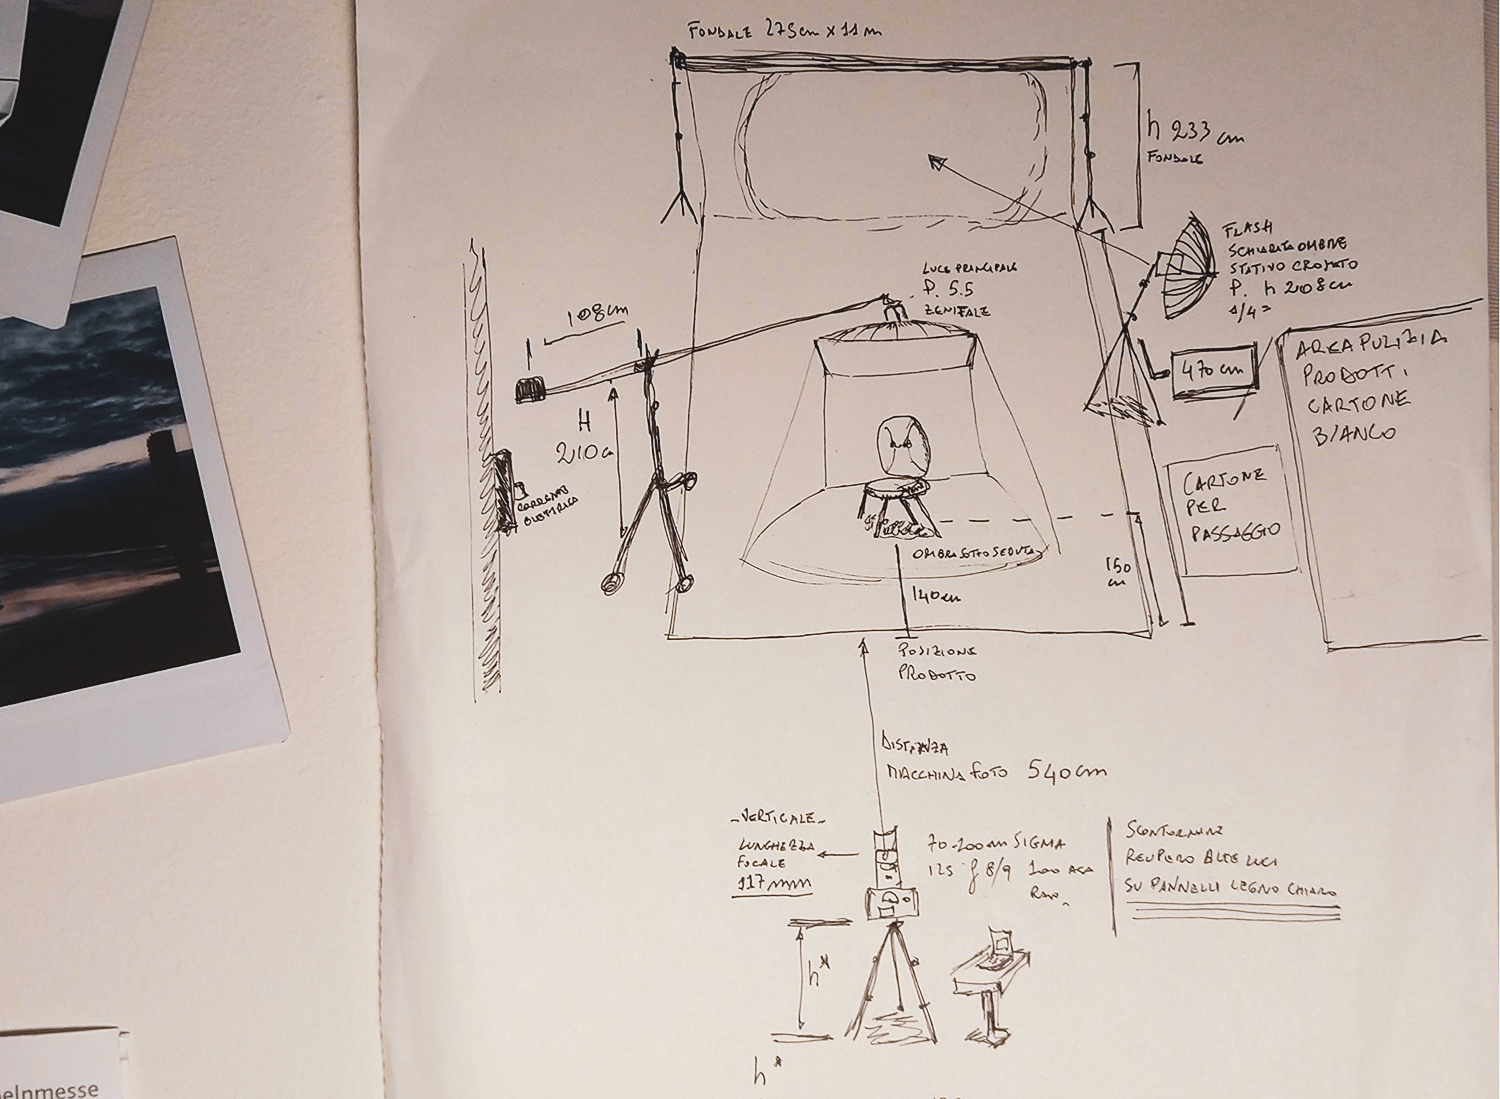 FONDALE 275cm x 11m
h 233 cm
FONDALE
FLASH
SCHIARITA OMBRE
STATIVO CROMATO
P. h 208cm
1/4=
LUCE PRINCIPALE
P. 5.5
ZENITALE
108cm
470 cm
AREA PULIZIA
PRODOTTI
CARTONE
BIANCO
H
210c
CORRENTE
ELETTRICA
CARTONE
PER
PASSAGGIO
OMBRA SOTTO SEDUTA
150
cm
140cm
POSIZIONE
PRODOTTO
DISTANZA
MACCHINA FOTO 540cm
-VERTICALE-
LUNGHEZZA
FOCALE
117mm
70-200mm SIGMA
125 f 8/9 100 ASA
RAW
SCONTORNARE
RECUPERO ALTE LUCI
SU PANNELLI LEGNO CHIARO
h*
h*
elnmesse